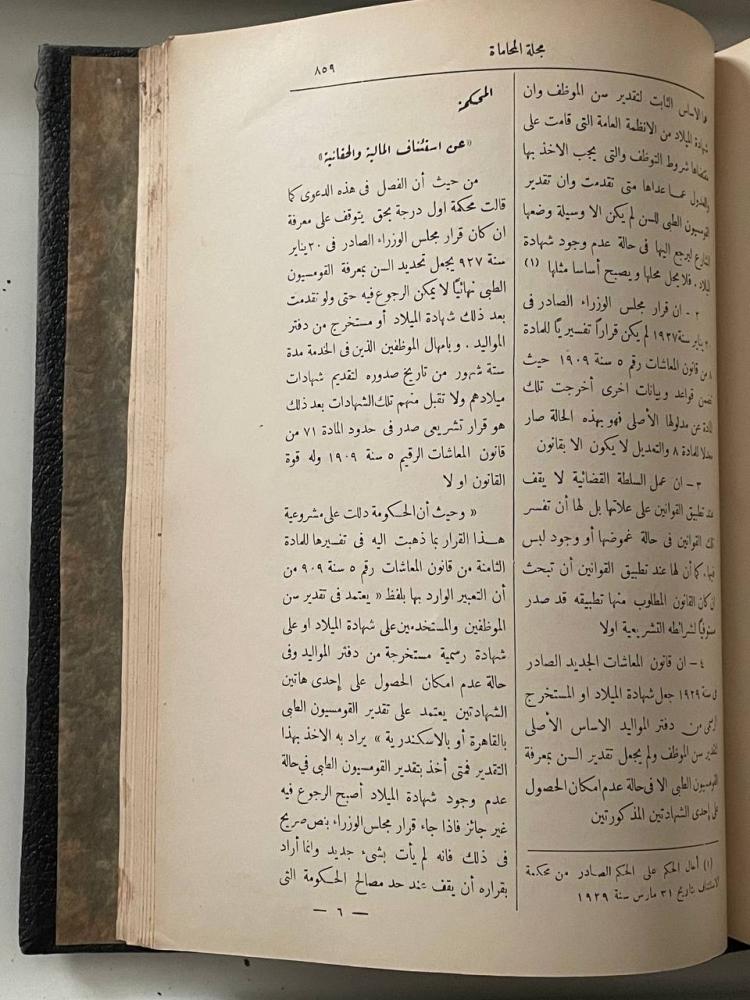 مجلة المحاماة
٨٥٩
الأساس الثابت لتقدير سن الموظف وان
شهادة الميلاد من الانظمة العامة التى قامت على
مقتضاها شروط التوظف والتى يجب الاخذ بها
والعدول عما عداها متى تقدمت وان تقدير
القومسيون الطبى للسن لم يكن الا وسيلة وضعها
الشارع ليرجع اليها فى حالة عدم وجود شهادة
الميلاد . فلا يحل محلها ويصبح أساسا مثلها (١)
٢ - ان قرار مجلس الوزراء الصادر فى
يناير سنة ١٩٢٧ لم يكن قراراً تفسيريًا للمادة
٨ من قانون المعاشات رقم ٥ سنة ١٩٠٩ حيث
تضمن قواعد وبيانات اخرى أخرجت تلك
المادة عن مدلولها الأصلى فهو بهذه الحالة صار
معدلا للمادة ٨ والتعديل لا يكون الا بقانون
٣ - ان عمل السلطة القضائية لا يقف
عند تطبيق القوانين على علاتها بل لها أن تفسر
تلك القوانين فى حالة غموضها أو وجود لبس
فيها. كما أن لها عند تطبيق القوانين أن تبحث
ان كان القانون المطلوب منها تطبيقه قد صدر
مستوفيًا لشرائطه التشريعية اولا
٤ - ان قانون المعاشات الجديد الصادر
فى سنة ١٩٢٩ جعل شهادة الميلاد او المستخرج
الرسمى من دفتر المواليد الاساس الأصلى
لتقدير سن الموظف ولم يجعل تقدير السن بمعرفة
القومسيون الطبى الا فى حالة عدم امكان الحصول
على إحدى الشهادتين المذكورتين
(١) أحال الحكم على الحكم الصادر من محكمة
الاستئناف بتاريخ ٣١ مارس سنة ١٩٢٩
المحكمة
«عن استئناف المالية والحقانية»
من حيث أن الفصل فى هذه الدعوى كما
قالت محكمة اول درجة بحق يتوقف على معرفة
ان كان قرار مجلس الوزراء الصادر فى ٢٠ يناير
سنة ٩٢٧ يجعل تحديد السن بمعرفة القومسيون
الطبى نهائيًا لا يمكن الرجوع فيه حتى ولو تقدمت
بعد ذلك شهادة الميلاد أو مستخرج من دفتر
المواليد . وبامهال الموظفين الذين فى الخدمة مدة
ستة شهور من تاريخ صدوره لتقديم شهادات
ميلادهم ولا تقبل منهم تلك الشهادات بعد ذلك
هو قرار تشريعى صدر فى حدود المادة ٧١ من
قانون المعاشات الرقيم ٥ سنة ١٩٠٩ وله قوة
القانون او لا
« وحيث أن الحكومة دللت على مشروعية
هذا القرار بما ذهبت اليه فى تفسيرها للمادة
الثامنة من قانون المعاشات رقم ٥ سنة ٩٠٩ من
أن التعبير الوارد بها بلفظ « يعتمد فى تقدير سن
الموظفين والمستخدمين على شهادة الميلاد او على
شهادة رسمية مستخرجة من دفتر المواليد وفى
حالة عدم امكان الحصول على إحدى هاتين
الشهادتين يعتمد على تقدير القومسيون الطبى
بالقاهرة أو بالاسكندرية » يراد به الاخذ بهذا
التقدير فمتى أخذ بتقدير القومسيون الطبى فى حالة
عدم وجود شهادة الميلاد أصبح الرجوع فيه
غير جائز فاذا جاء قرار مجلس الوزراء بنص صريح
فى ذلك فانه لم يأت بشىء جديد وانما أراد
بقراره أن يقف عند حد مصالح الحكومة التى
— ٦ —